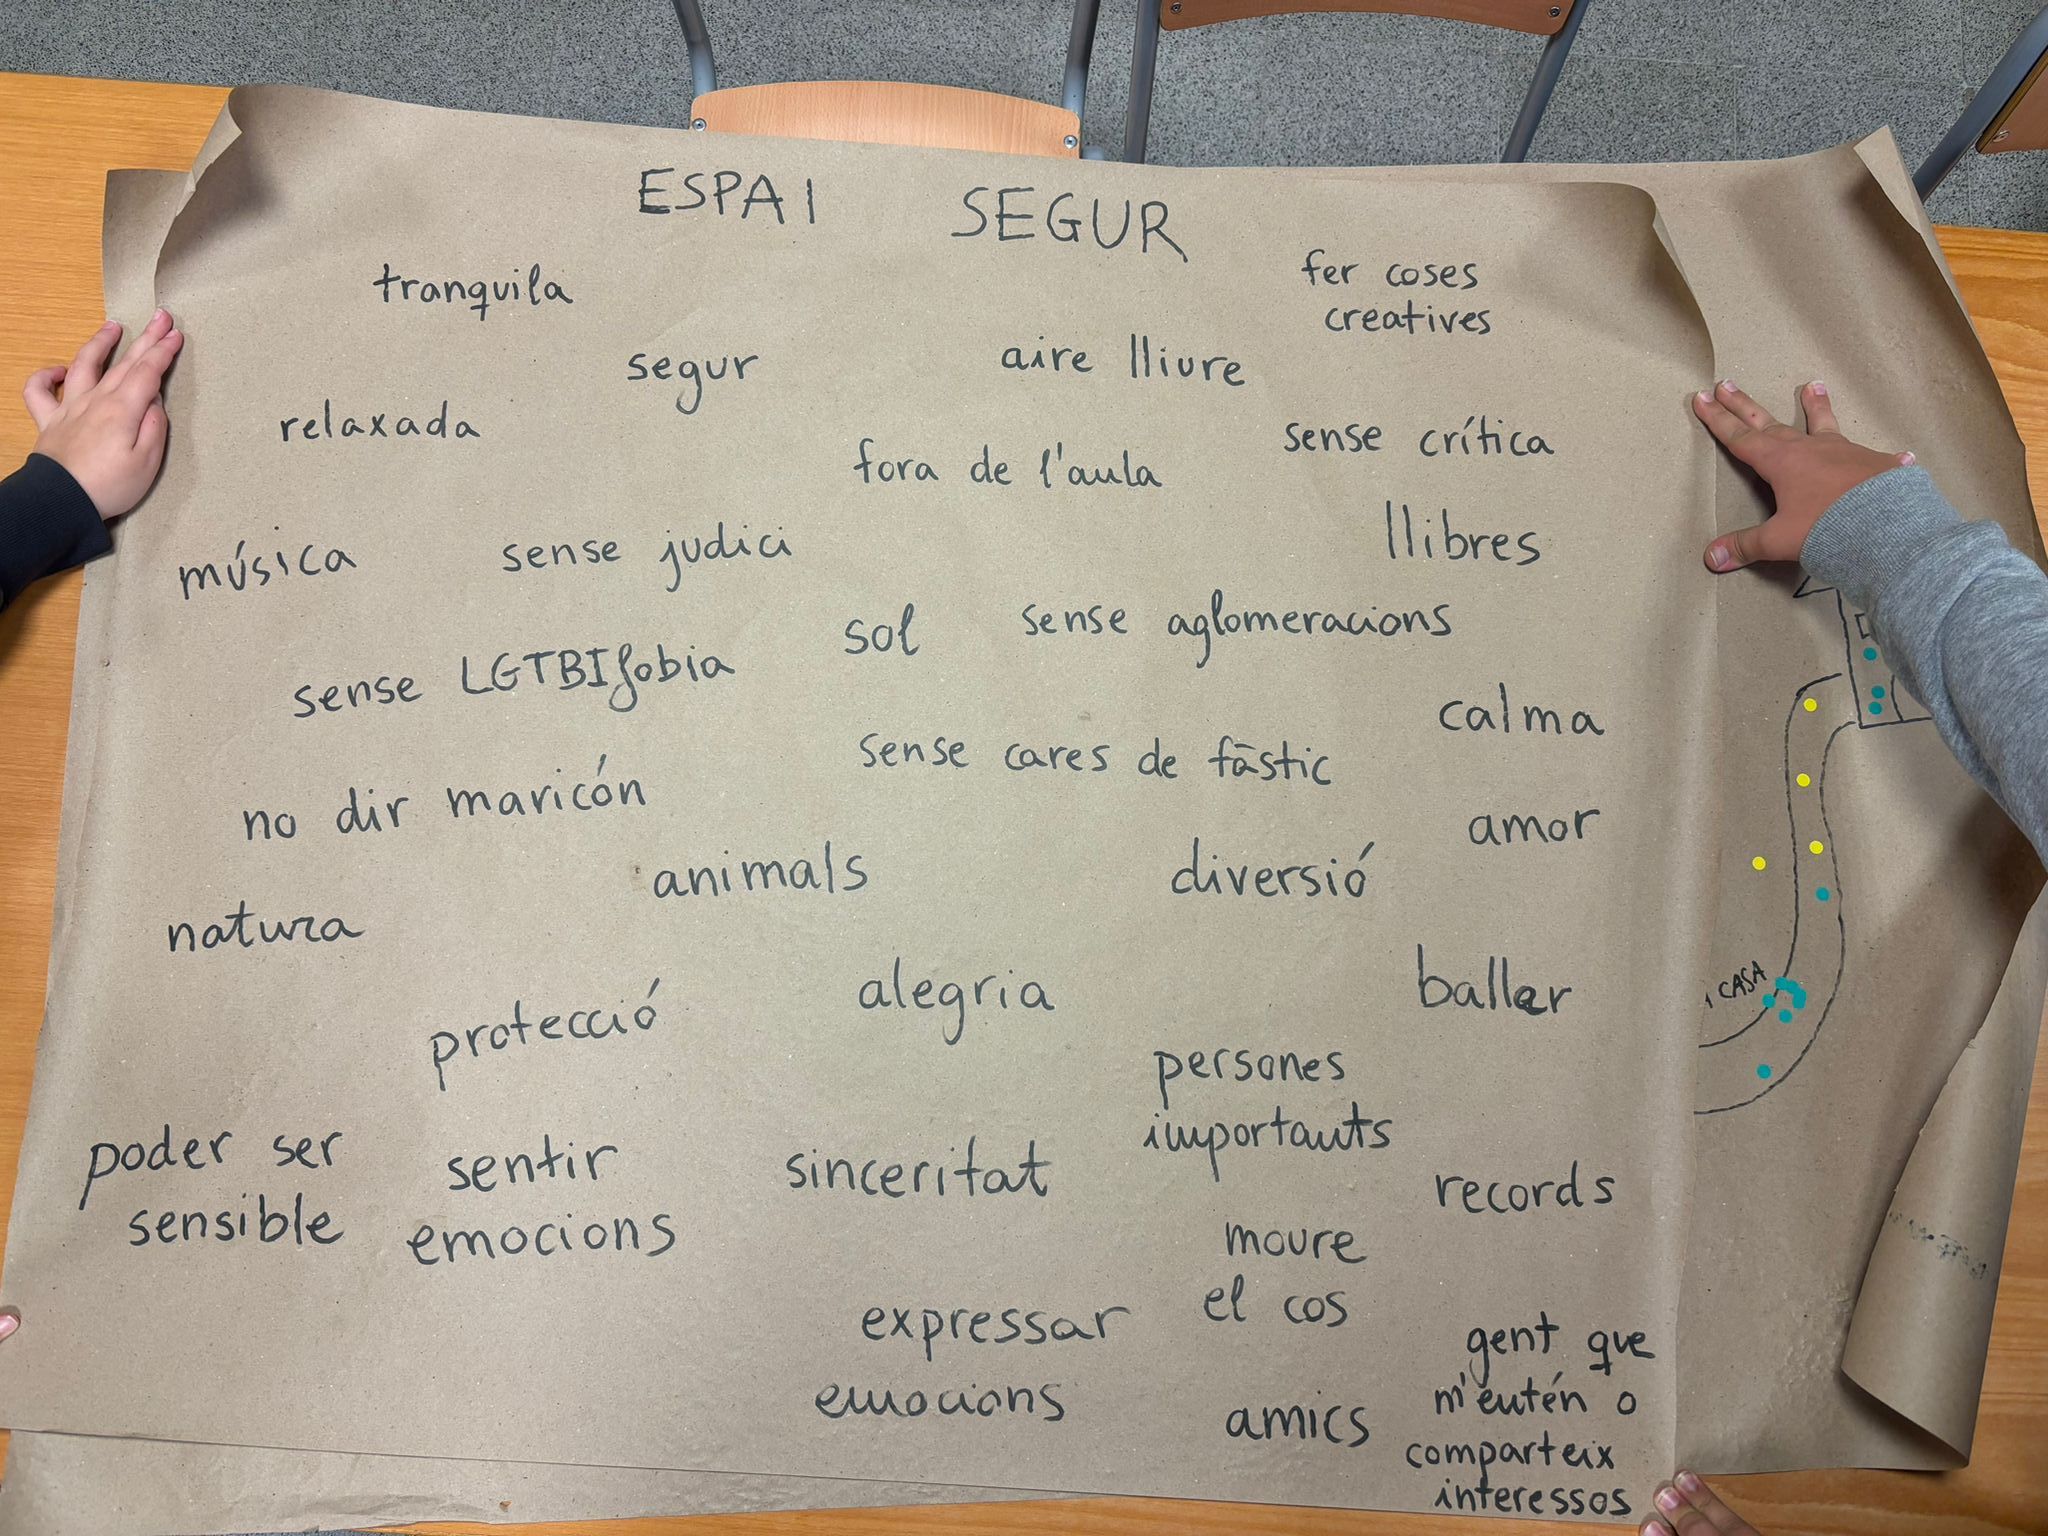 ESPAI SEGUR
tranquila
fer coses
creatives
segur
aire lliure
relaxada
fora de l'aula
sense crítica
música
sense judici
llibres
sol
sense aglomeracions
sense LGTBIfobia
calma
sense cares de fàstic
no dir maricón
amor
animals
diversió
natura
alegria
ballar
protecció
persones
importants
poder ser
sensible
sentir
emocions
sinceritat
records
moure
el cos
expressar
emocions
amics
gent que
m'entén o
comparteix
interessos
CASA